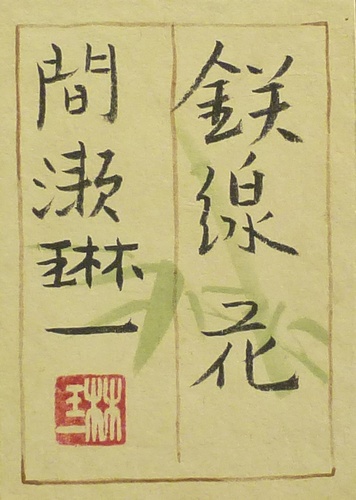 鉄線花
間瀬琳一
琳一